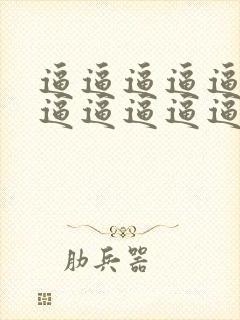 逼逼逼逼逼
逼逼逼逼逼
肋兵器